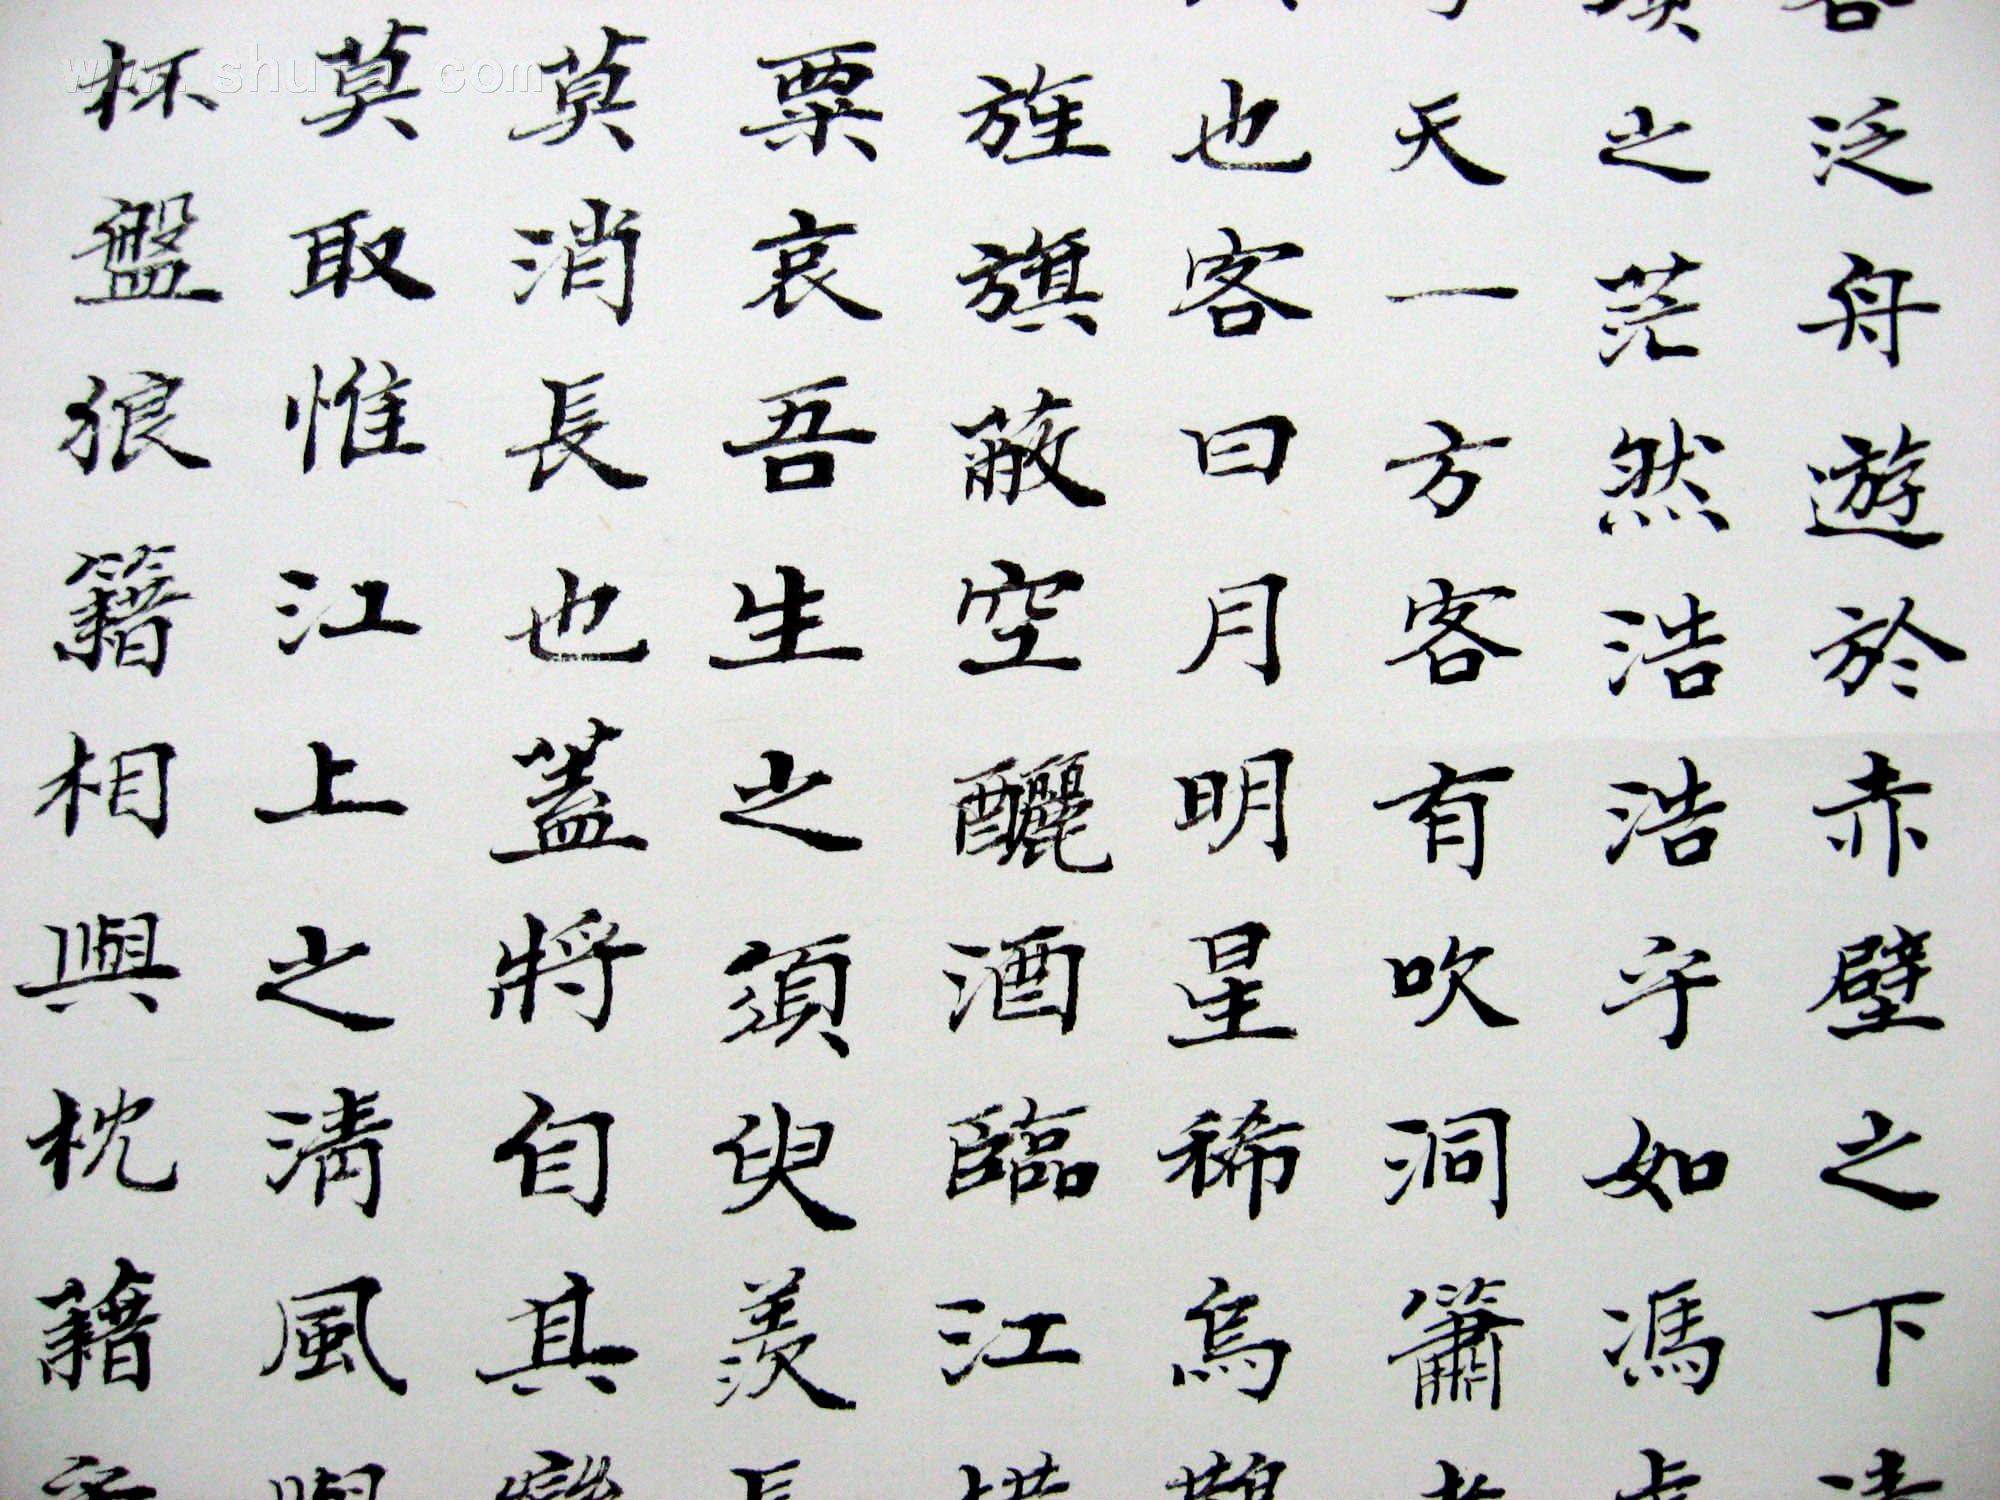 客泛舟遊於赤壁之下清
頃之茫然浩浩乎如馮虛
天一方客有吹洞簫者
也客曰月明星稀烏鵲
旌旗蔽空釃酒臨江橫
粟哀吾生之須臾羨長
莫消長也蓋將自其變
莫取惟江上之清風與
杯盤狼籍相與枕藉
www.shufa.com